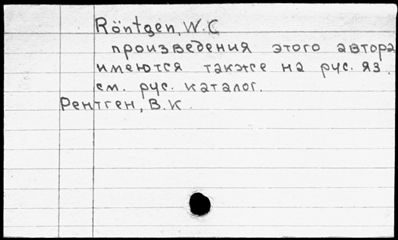 Röntgen, W.C
произведения этого автора
имеются также на рус. яз.
см. рус. каталог.
Рентген, В.К.